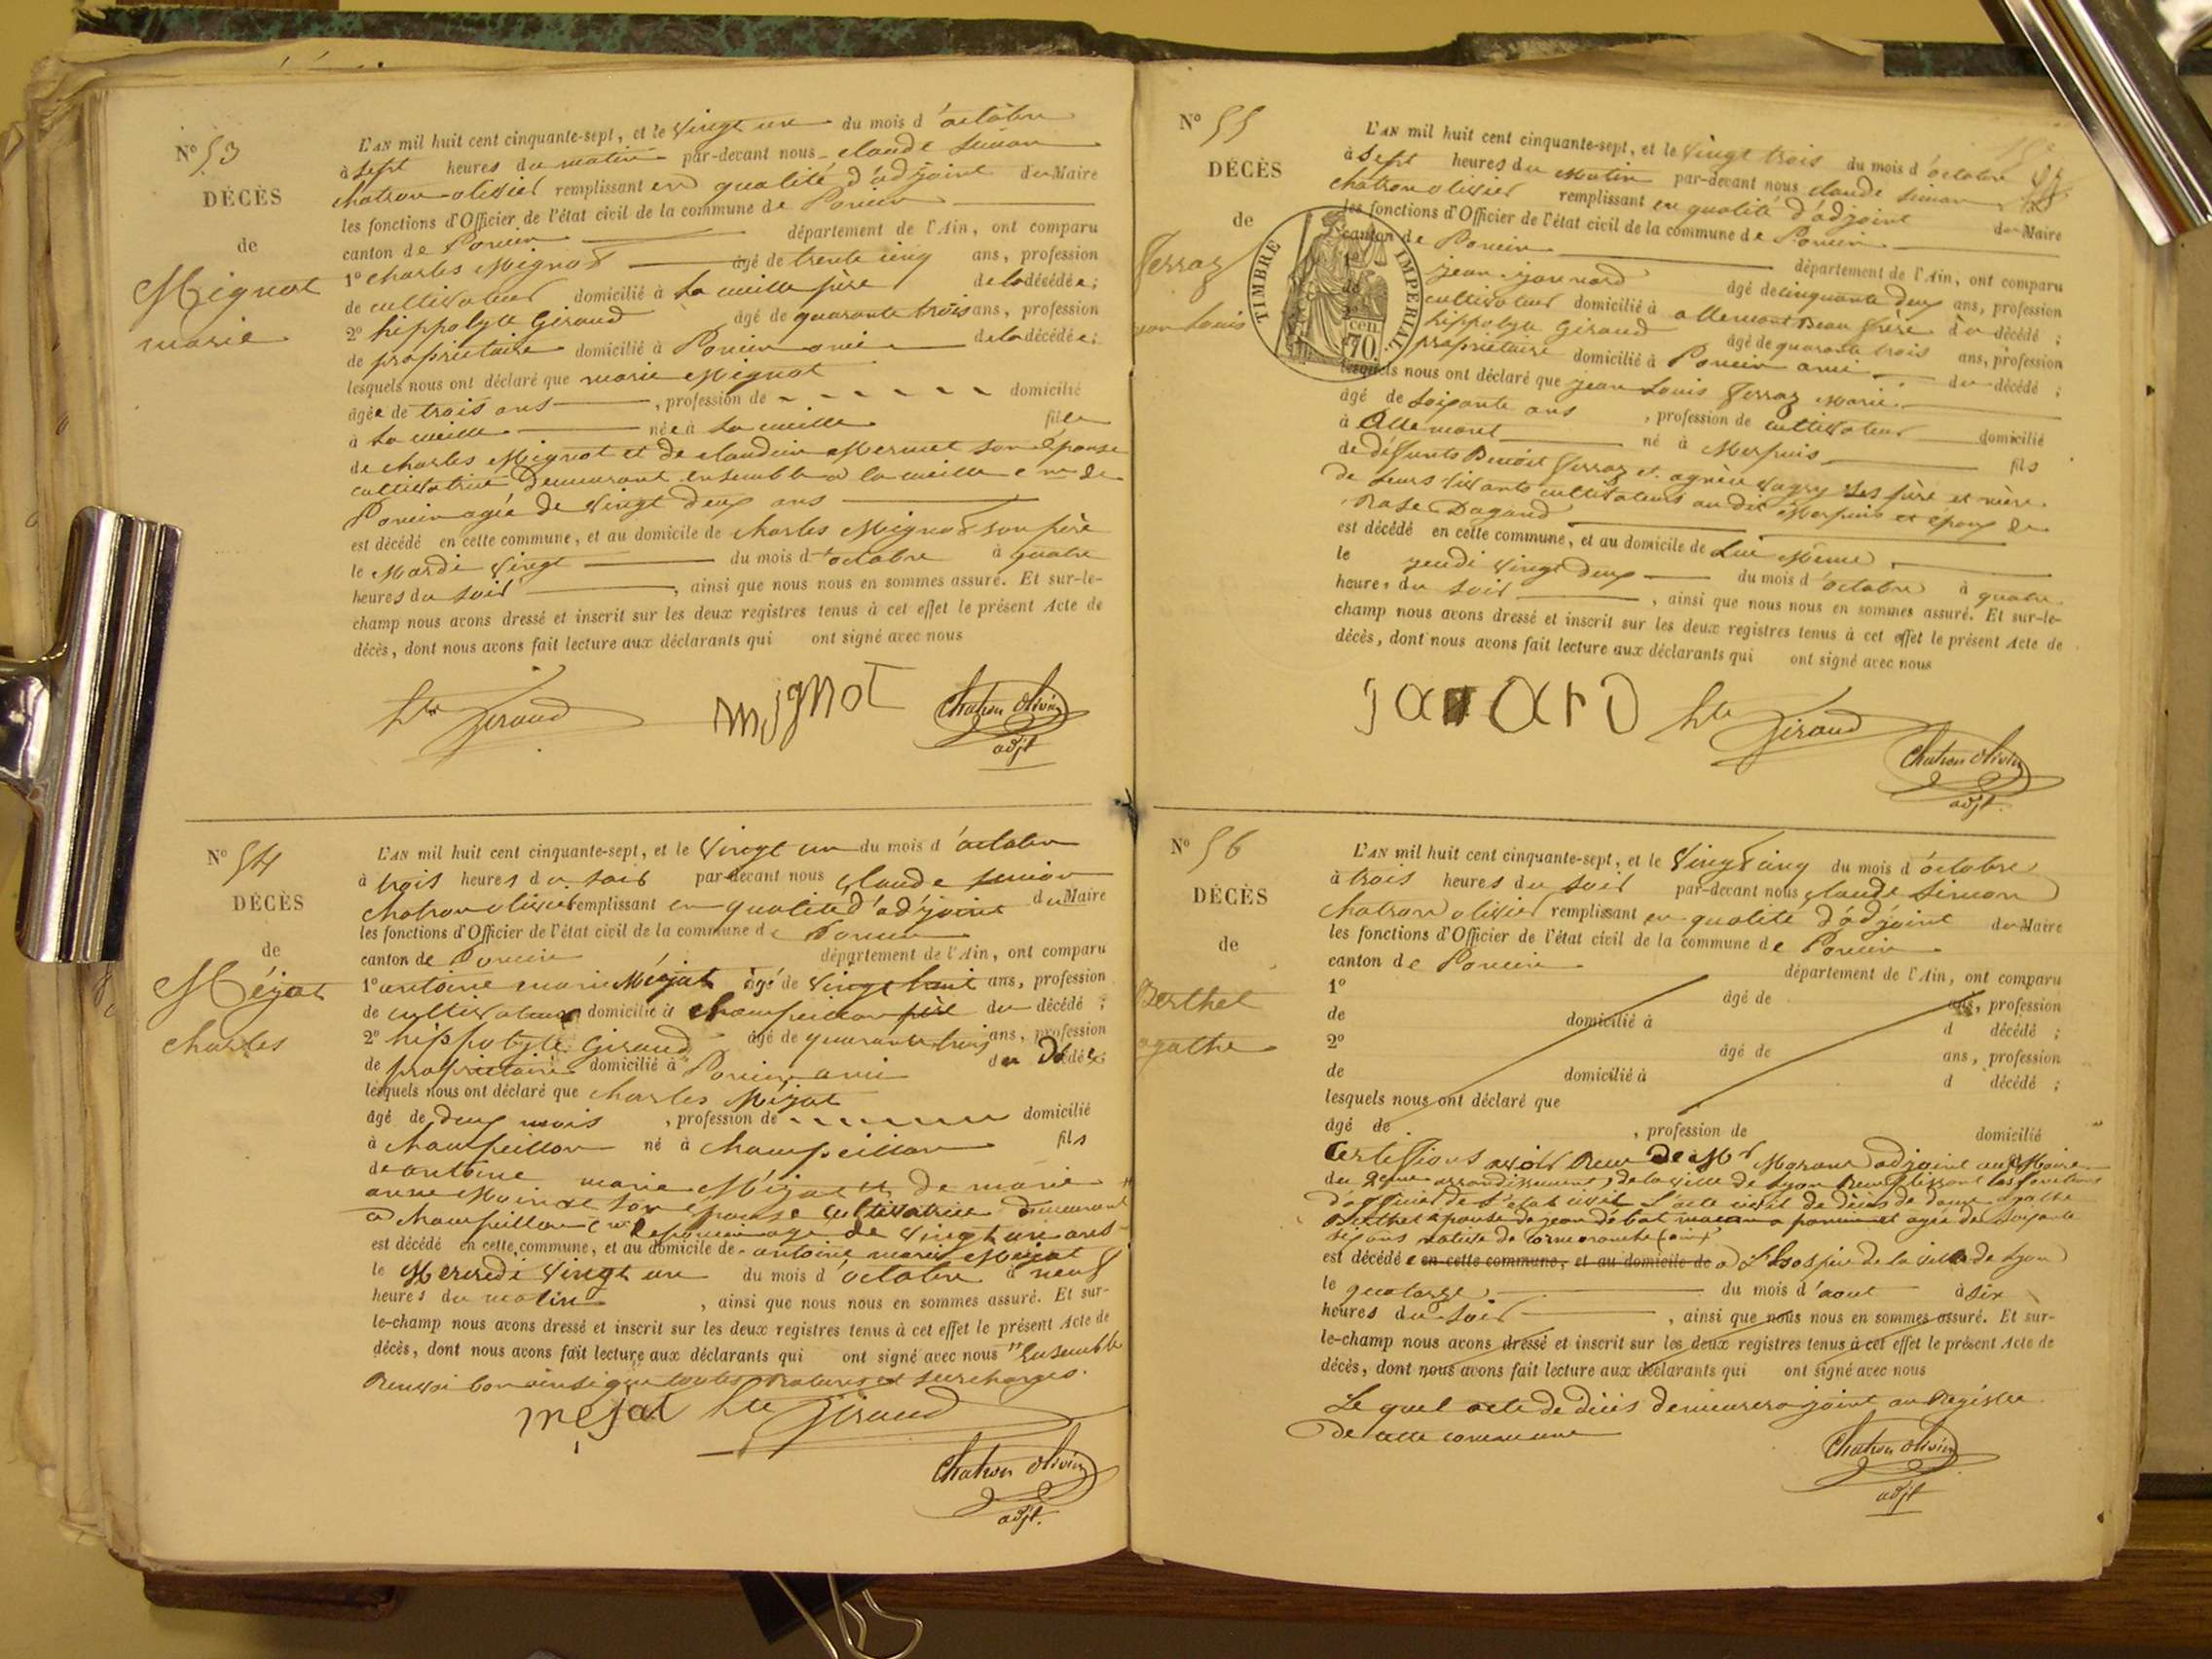 N° 53
DÉCÈS
de
Mignot
marie
L'AN mil huit cent cinquante-sept, et le vingt un du mois d'octobre
à sept heures du matin par-devant nous claude simon
chatron olivier remplissant en qualité d'adjoint du Maire
les fonctions d'Officier de l'état civil de la commune de Poncin
canton de Poncin département de l'Ain, ont comparu
1° charles Mignot âgé de trente cinq ans, profession
de cultivateur domicilié à la cueille père de la décédée;
2° hippolyte Giraud âgé de quarante trois ans, profession
de propriétaire domicilié à Poncin ami de la décédée;
lesquels nous ont déclaré que marie Mignot
âgée de trois ans, profession de domicilié
à la cueille née à la cueille fille
de charles Mignot et de claudine Mermet son épouse
cultivatrice demeurant ensemble à la cueille cne de
Poncin agée de vingt deux ans
est décédé en cette commune, et au domicile de charles Mignot son père
le Mardi vingt du mois d'octobre à quatre
heures du soir, ainsi que nous nous en sommes assuré. Et sur-le-
champ nous avons dressé et inscrit sur les deux registres tenus à cet effet le présent Acte de
décès, dont nous avons fait lecture aux déclarants qui ont signé avec nous
hte Giraud mignot Chatron Olivier
adjt
N° 54
DÉCÈS
de
Méjat
charles
L'AN mil huit cent cinquante-sept, et le vingt un du mois d'octobre
à trois heures du soir par-devant nous claude simon
chatron olivier remplissant en qualité d'adjoint du Maire
les fonctions d'Officier de l'état civil de la commune de Poncin
canton de Poncin département de l'Ain, ont comparu
1° antoine marie Méjat âgé de vingt huit ans, profession
de cultivateur domicilié à champeillon père du décédé;
2° hippolyte Giraud âgé de quarante trois ans, profession
de propriétaire domicilié à Poncin ami du Décédé;
lesquels nous ont déclaré que charles Méjat
âgé de deux mois, profession de domicilié
à champeillon né à champeillon fils
de antoine marie Méjat et de marie
anne son épouse cultivatrice demeurant
à champeillon cne de poncin age de vingt un ans
est décédé en cette commune, et au domicile de antoine marie Mejat
le Mercredi vingt un du mois d'octobre à neuf
heures du matin, ainsi que nous nous en sommes assuré. Et sur-
le-champ nous avons dressé et inscrit sur les deux registres tenus à cet effet le présent Acte de
décès, dont nous avons fait lecture aux déclarants qui ont signé avec nous " Ensemble
Renvoi bon ainsi que toutes ratures et surcharges.
mejat hte Giraud
Chatron Olivier
adjt.
N° 55
DÉCÈS
de
Ferraz
jean Louis
TIMBRE IMPERIAL
70 cen
L'AN mil huit cent cinquante-sept, et le vingt trois du mois d'octobre
à sept heures du matin par-devant nous claude simon
chatron olivier remplissant en qualité d'adjoint du Maire
les fonctions d'Officier de l'état civil de la commune de Poncin
canton de Poncin département de l'Ain, ont comparu
1° jean âgé de cinquante deux ans, profession
de cultivateur domicilié à allement Beau frère du décédé;
hippolyte Giraud âgé de quarante trois ans, profession
propriétaire domicilié à Poncin ami du décédé;
lesquels nous ont déclaré que jean Louis Ferraz Marie
âgé de soixante ans, profession de cultivateur domicilié
à Allement né à Merpuis fils
de défunts Benoit Ferraz et ses père et mère
de leurs vivants cultivateurs au dit Merpuis et époux de
Rose Dagand
est décédé en cette commune, et au domicile de Lui Même
le jeudi vingt deux du mois d'octobre à quatre
heures du soir, ainsi que nous nous en sommes assuré. Et sur-le-
champ nous avons dressé et inscrit sur les deux registres tenus à cet effet le présent Acte de
décès, dont nous avons fait lecture aux déclarants qui ont signé avec nous
hte Giraud
Chatron Olivier
adjt.
N° 56
DÉCÈS
de
Berthet
agathe
L'AN mil huit cent cinquante-sept, et le vingt cinq du mois d'octobre
à trois heures du soir par-devant nous claude simon
chatron olivier remplissant en qualité d'adjoint du Maire
les fonctions d'Officier de l'état civil de la commune de Poncin
canton de Poncin département de l'Ain, ont comparu
1° âgé de ans, profession
de domicilié à d décédé;
2° âgé de ans, profession
de domicilié à d décédé;
lesquels nous ont déclaré que
âgé de, profession de domicilié
Certifions avoir Reçu de Mr adjoint au Maire
du 2eme arrondissement, de la ville de Lyon Remplissant les fonctions
d'officier de l'état civil L'acte civil de décès de dame agathe
Berthet épouse de jean débat macon a poncin et agée de soixante
six ans native de Cormoranche (ain)
est décédé e en cette commune, et au domicile de à L'hospice de la ville de Lyon
le quatorze du mois d'aout à six
heures du soir, ainsi que nous nous en sommes assuré. Et sur-
le-champ nous avons dressé et inscrit sur les deux registres tenus à cet effet le présent Acte de
décès, dont nous avons fait lecture aux déclarants qui ont signé avec nous
Le quel acte de décès demeurera joint au Registre
De cette commune
Chatron Olivier
adjt